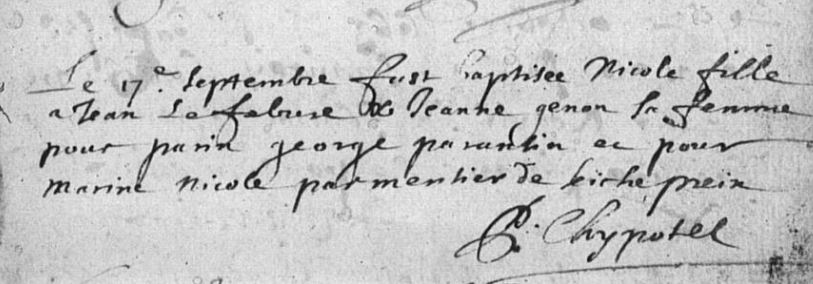 Le 17e. Septembre fust baptisee Nicole fille
a Jean Lefebvre & Jeanne genon sa femme
pour parin george parantin et pour
marine Nicole parmentier de
P. Chypotel